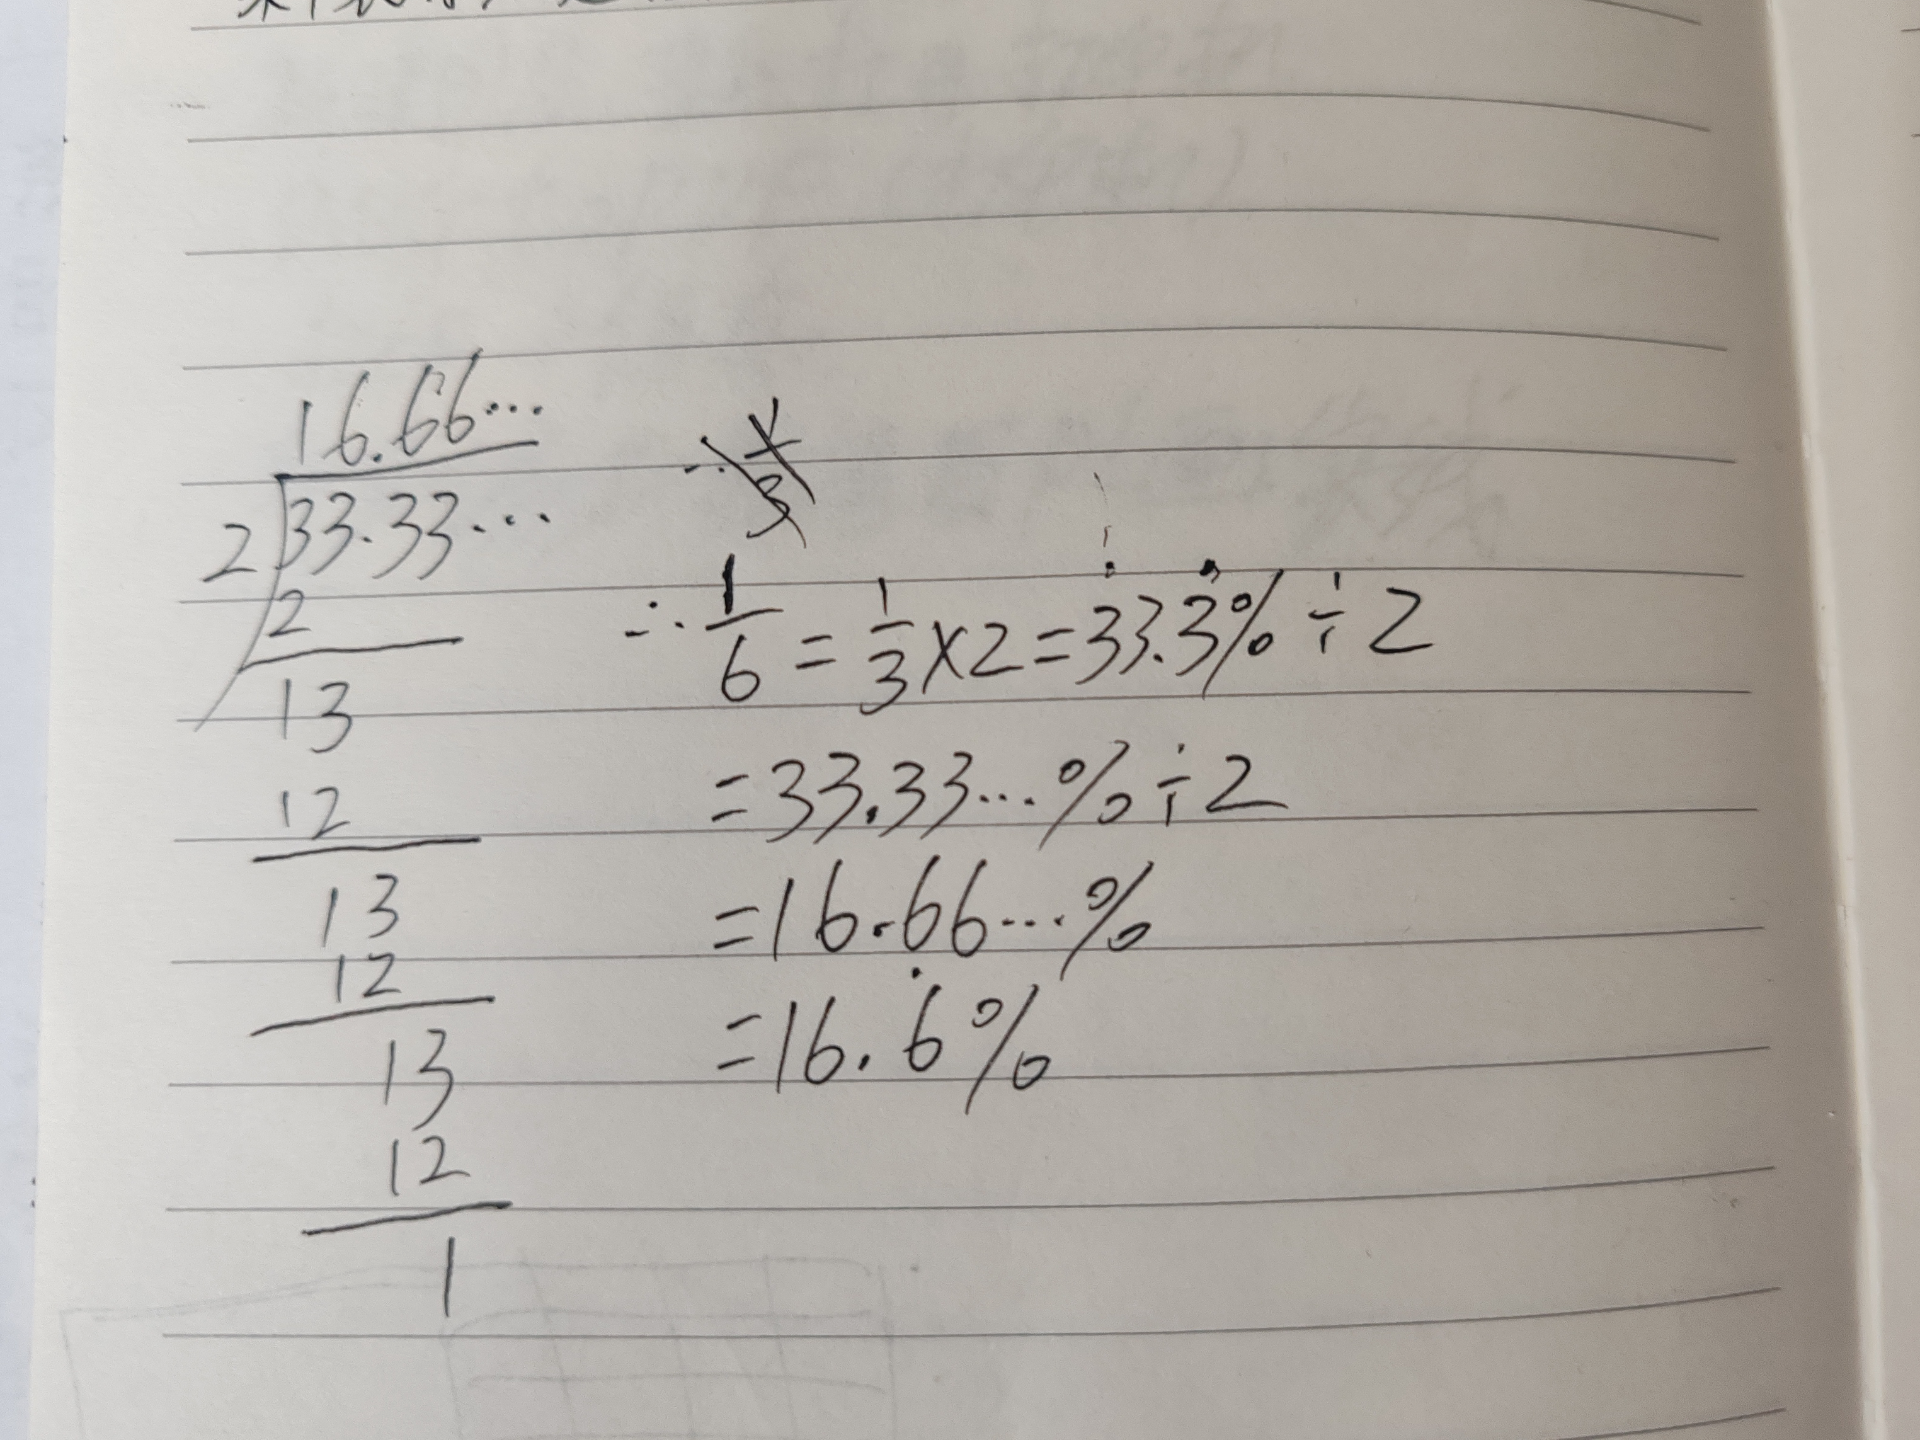 16.66...
2 33.33...
2
13
12
13
12
13
12
1
∴ 1/6 = 1/3 × 2 = 33.3̇% ÷ 2
= 33.33...% ÷ 2
= 16.66...%
= 16.6̇%